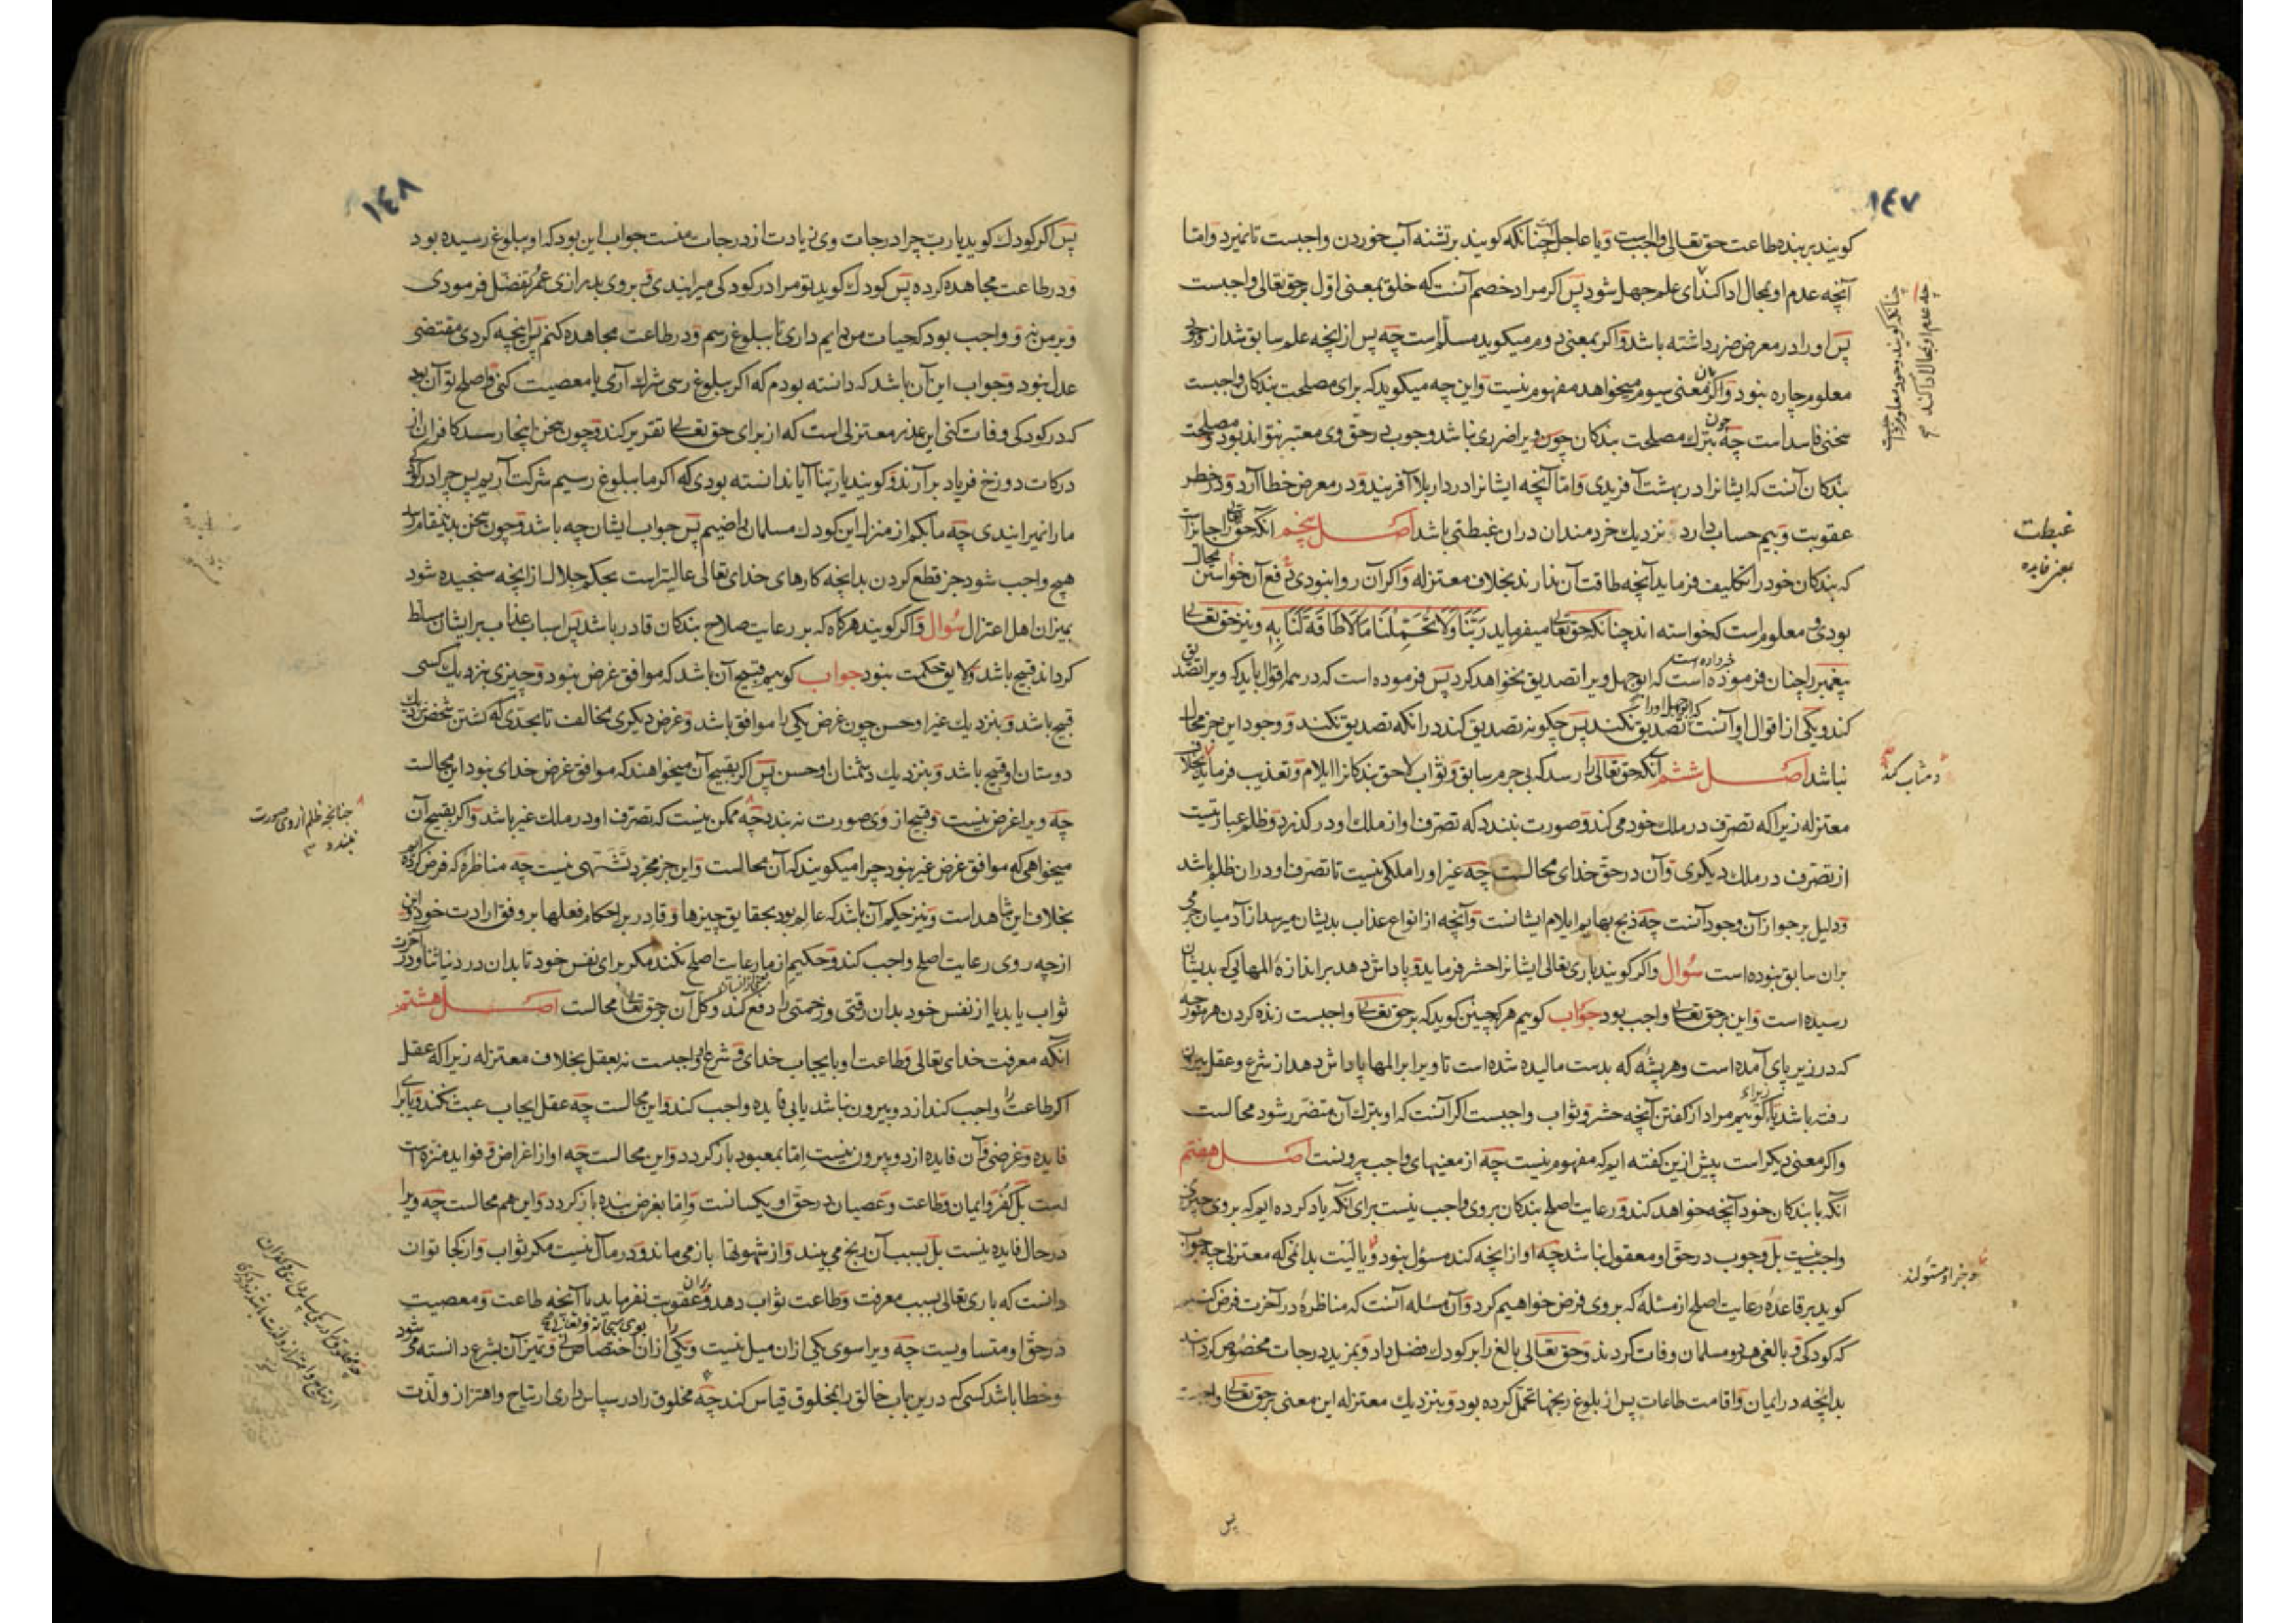 ١٤٧
کویند بر بنده طاعت حق تعالی واجبست ویا عاجل چنانکه کویند بر تشنه آب خوردن واجبست تا نمیرد واما
آنچه عدم او بمحال ادا کند ای علم جهل شود پس اکر مراد خصم آنست که خلق بمعنی اول بر حق تعالی واجبست
پس او را در معرض ضرر داشته باشد واکر بمعنی دوم میکوید مسلم است چه پس از انچه علم سابق شد از وجود
معلوم چاره نبود واکر بمعنی سیوم میخواهد مفهوم نیست واین چه میکوید که برای مصلحت بندکان واجبست
سخنی فاسد است چه چون بترک مصلحت بندکان ویرا ضرری نباشد وجوب در حق وی معتبر نتواند بود ومصلحت
بندکان آنست که ایشانرا در بهشت آفریدی واما آنچه ایشانرا در دار بلا آفریند ودر معرض خطا آرد ودر خطر
عقوبت وبیم حساب دارد نزدیک خردمندان دران غبطتی باشد اصل پنجم آنکه حق تعالی را جایزاست
که بندکان خود را تکلیف فرماید آنچه طاقت آن ندارند بخلاف معتزله واکر آن روا نبودی دفع آن خواستن محال
بودی ومعلوم است که خواسته اند چنانکه حق تعالی میفرماید ربنا ولا تحملنا ما لا طاقة لنا به ونیز حق تعالی
پیغمبر را چنان فرموده است که ابو جهل ویرا تصدیق نخواهد کرد پس فرموده است که در همه اقوال باید که ویرا تصدیق
خبر داده است
کند ویکی از اقوال او آنست که ابو جهل اورا تصدیق نکند پس چکونه تصدیق کند درانکه تصدیق نکند ووجود این جز محال
نباشد اصل ششم آنکه حق تعالی را رسد که بی جرم سابق وثواب لاحق بندکانرا ایلام وتعذیب فرماید بخلاف
معتزله زیرا که تصرف در ملک خود می کند وصورت نبندد که تصرف او از ملک او در کذرد وظلم عبارتیست
از تصرف در ملک دیکری وآن در حق خدای محالست چه غیر او را ملکی نیست تا تصرف او دران ظلم باشد
ودلیل بر جواز آن وجود آنست چه ذبح بهایم ایلام ایشانست وآنچه از انواع عذاب بدیشان میرسد از آدمیان جرمی
بران سابق نبوده است سؤال واکر کویند باری تعالی ایشانرا حشر فرماید وپاداش دهد بر اندازهٔ المهایی که بدیشان
رسیده است واین بر حق تعالی واجب بود جواب کوییم هر که چنین کوید که بر حق تعالی واجبست زنده کردن هر مورچه
که در زیر پای آمده است وهر پشهٔ که بدست مالیده شده است تا ویرا بر المها پاداش دهد از شرع وعقل بیرون
رفته باشد زیرا که کوییم مراد از کفتن آنچه حشر وثواب واجبست اکر آنست که او بترک آن متضرر شود محالست
واکر معنی دیکر است پیش ازین کفته ایم که مفهوم نیست چه از معنیهای واجب بیرونست اصل هفتم
آنکه با بندکان خود آنچه خواهد کند ورعایت اصلح بندکان بر وی واجب نیست برای آنکه یاد کرده ایم که بر وی چیزی
واجب نیست بل وجوب در حق او معقول نباشد چه او از انچه کند مسؤل نبود ویا لیت بدانمی که معتزلی چه جواب
کوید بر قاعدهٔ رعایت اصلح از مسئلهٔ که بر وی فرض خواهیم کرد وآن مسئله آنست که مناظرهٔ در آخرت فرض کنیم
که کودکی وبالغی هر دو مسلمان وفات کردند وحق تعالی بالغ را بر کودک فضل داد وبمزید درجات مخصوص کردانید
بدانچه در ایمان واقامت طاعات پس از بلوغ رنجها تحمل کرده بود وبنزدیک معتزله این معنی بر حق تعالی واجبست
چنانکه کویند وجود معلوم واجبست
چه عدم او بمحال ادا کند
غبطت
بمعنی فایده
وجزا ومسئولند
پس
١٤٨
پس اکر کودک کوید یارب چرا درجات وی زیادت از درجات منست جواب این بود که او ببلوغ رسیده بود
ودر طاعت مجاهده کرده پس کودک کوید تو مرا در کودکی میرانیدی وبر وی بدرازی عمر تفضل فرمودی
وبر من نه وواجب بود که حیات من دایم داری تا ببلوغ رسم ودر طاعت مجاهده کنم پس انچه کردی مقتضی
عدل نبود وجواب این آن باشد که دانسته بودم که اکر ببلوغ رسی شرک آری یا معصیت کنی واصلح تو آن بود
که در کودکی وفات کنی این عذر معتزلی است که از برای حق تعالی تقریر کند وچون سخن اینجا رسد کافران از
درکات دوزخ فریاد بر آرند وکویند یا ربنا آیا ندانسته بودی که اکر ما ببلوغ رسیم شرک آریم پس چرا در کودکی
ما را نمیرانیدی چه ما بکم از منزلت این کودک مسلمان راضییم پس جواب ایشان چه باشد وچون سخن بدینمقام رسد
هیچ واجب نشود جز قطع کردن بدانچه کارهای خدای تعالی عالیتر است بحکم جلال از انچه سنجیده شود
بمیزان اهل اعتزال سؤال واکر کویند هرکاه که بر رعایت صلاح بندکان قادر باشد پس اسباب عذاب بر ایشان مسلط
کرداند قبیح باشد ولایق حکمت نبود جواب کوییم قبیح آن باشد که موافق غرض نبود وچیزی بنزدیک کسی
قبیح باشد وبنزدیک غیر او حسن چون غرض یکی را موافق باشد وغرض دیکری مخالف تا بحدی که کشتن شخصی نزدیک
دوستان او قبیح باشد وبنزدیک دشمنان او حسن پس اکر بقبیح آن میخواهند که موافق غرض خدای نبود این محالست
چه ویرا غرض نیست وقبیح از وی صورت نه بندد چه ممکن نیست که تصرف او در ملک غیر باشد واکر بقبیح آن
میخواهی که موافق غرض غیر نبود چرا میکویند که آن محالست واین جز مجرد تشهی نیست چه مناظرهٔ که فرض کرده ایم
بخلاف این شاهد است ونیز حکیم آن باشد که عالم بود بحقایق چیزها وقادر بر احکام فعلها بر وفق ارادت خود واین
از چه روی رعایت اصلح واجب کند وحکیم از ما رعایت اصلح نکند مکر برای نفس خود تا بدان در دنیا ثنا ودر آخرت
ثواب یابد یا از نفس خود بدان رقتی وزحمتی را دفع کند وکل آن بر حق تعالی محالست اصل هشتم
آنکه معرفت خدای تعالی وطاعت او بایجاب خدای وشرع او واجبست نه بعقل بخلاف معتزله زیرا که عقل
اکر طاعت را واجب کند از دو بیرون نباشد یا بی فایده واجب کند واین محالست چه عقل ایجاب عبث نکند ویا برای
فایده وغرضی وآن فایده از دو بیرون نیست اما بمعبود باز کردد واین محالست چه او از اغراض وفواید منزه است
بل کفر وایمان وطاعت وعصیان در حق او یکسانست واما بغرض بنده باز کردد واین هم محالست چه ویرا
در حال فایده نیست بل بسبب آن رنج می بیند واز شهوتها باز می ماند ودر مآل نیست مکر ثواب واز کجا توان
دانست که باری تعالی بسبب معرفت وطاعت ثواب دهد وبران عقوبت نفرماید با آنچه طاعت ومعصیت
در حق او متساویست چه ویرا سوی یکی ازان میل نیست ویکی را ازان بوی اختصاص نی وتمیز آن بشرع دانسته می شود
وخطا باشد کسی که درین باب خالق را بمخلوق قیاس کند چه مخلوق را در سپاس داری ارتیاح واهتزاز ولذت
چنانچه ظلم از وی صورت
نبندد